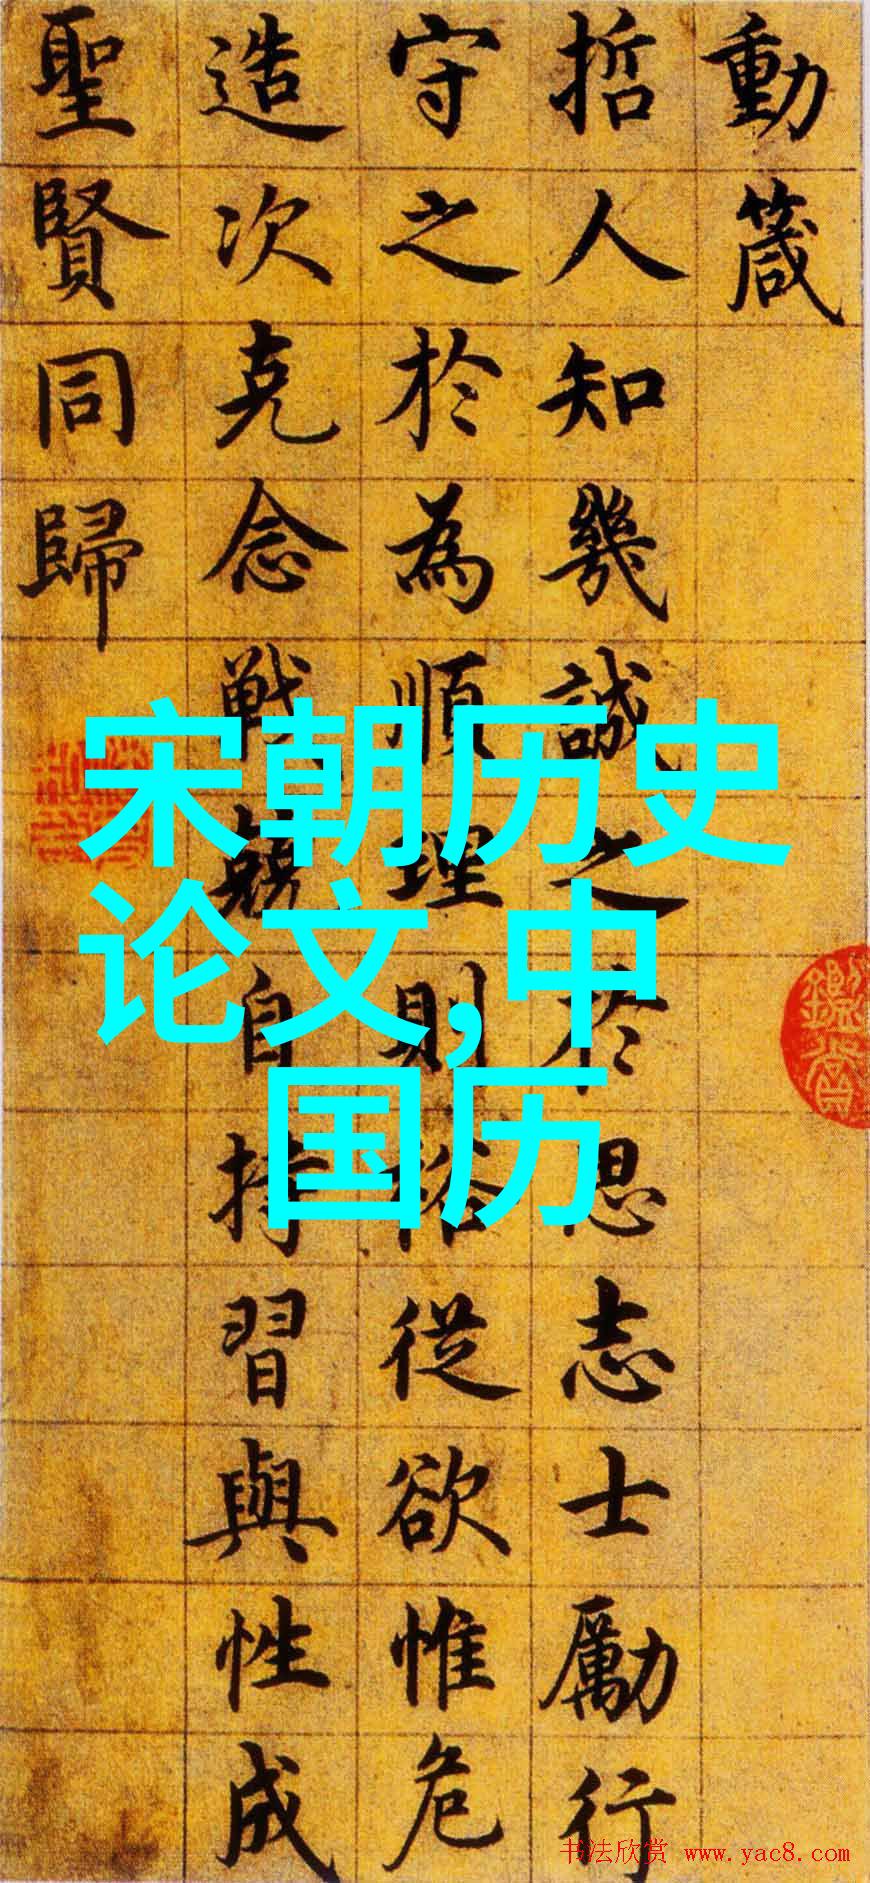 動箴
哲人知幾誠之於思志士勵行
守之於為順理則裕從欲惟危
造次克念戰兢自持習與性成
聖賢同歸
宋朝历史
论文,中
国历
书法欣赏 www.yac8.com